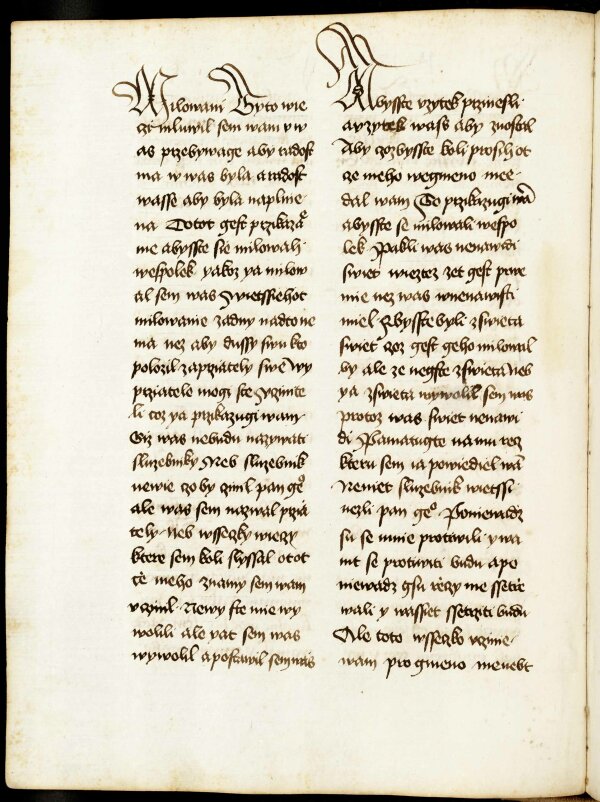 Milowani Tyto wie
czi mluwil sem wam y w
as przebywage aby radost
ma w was byla a radost
wasse aby byla naplnie
na Totot gest przikazā
nie abysste sie milowali
wespolek yakoz ya milow
al sem was Swietssiehot
milowanie zadny nadto ne
ma nez aby dussy swu kto
polozil za prziately swē Wy
przietele mogi ste Vczinite
li coz ya przikazugi wam
Giz was nebudu nazywati
sluzebniky Neb sluzebnik
newie czo by czinil pan geō
ale was sem nazwal przia
tely neb wsseczky wieczy
ktere sem koli slyssal ot ot
cē meho znamy sem wam
vczinil Newy ste mie wy
wolili ale yat sem was
wywolil a postawil sem was
Abysste vzytek przinesli
a vzytek wass aby znostal
Aby czozbysste koli prosili ot
cze meho we gmeno me e
dal wam To przikazugi wā
abysste se milowali wespo
lek Pakli was nenawidi
swiet wieztez zet gest prwe
mie nez was w nenawisti
miel Byste byli z swieta
swiet czoz gest geho milowal
by ale ze negste z swieta neb
ya z swieta wywolil sem was
protoz was swiet nenawi
di Pamatugte na mu rzecz
kteru sem ia powiediel wā
Neniet sluzebnik wietssi
nezli pan geō Poniewadz
su se mnie protiwili y wa
mt se protiwiti budu a po
niewadz gsu rzeczy me ssetrze
wali y wassiet ssetrziti budu
Ale toto wsseczko vczinie
wam pro gmeno me nebt